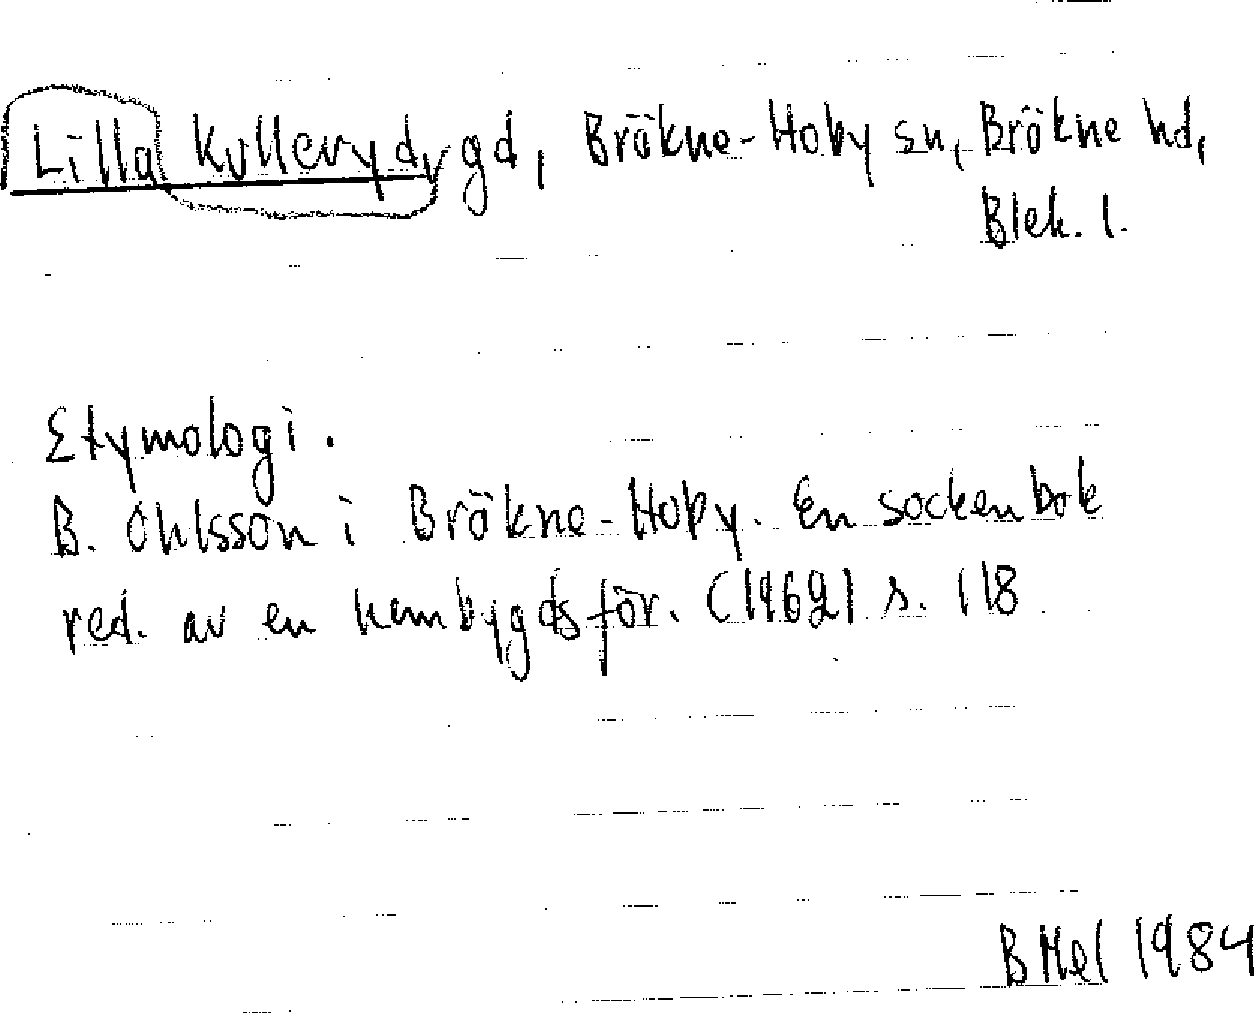 Lilla Kulleryd, gd, Bräkne-Hoby sn, Bräkne hd,
Blek. l.
Etymologi.
B. Ohlsson i Bräkne-Hoby. En sockenbok
red. av en hembygdsför. (1962) s. 118
B Mel 1984